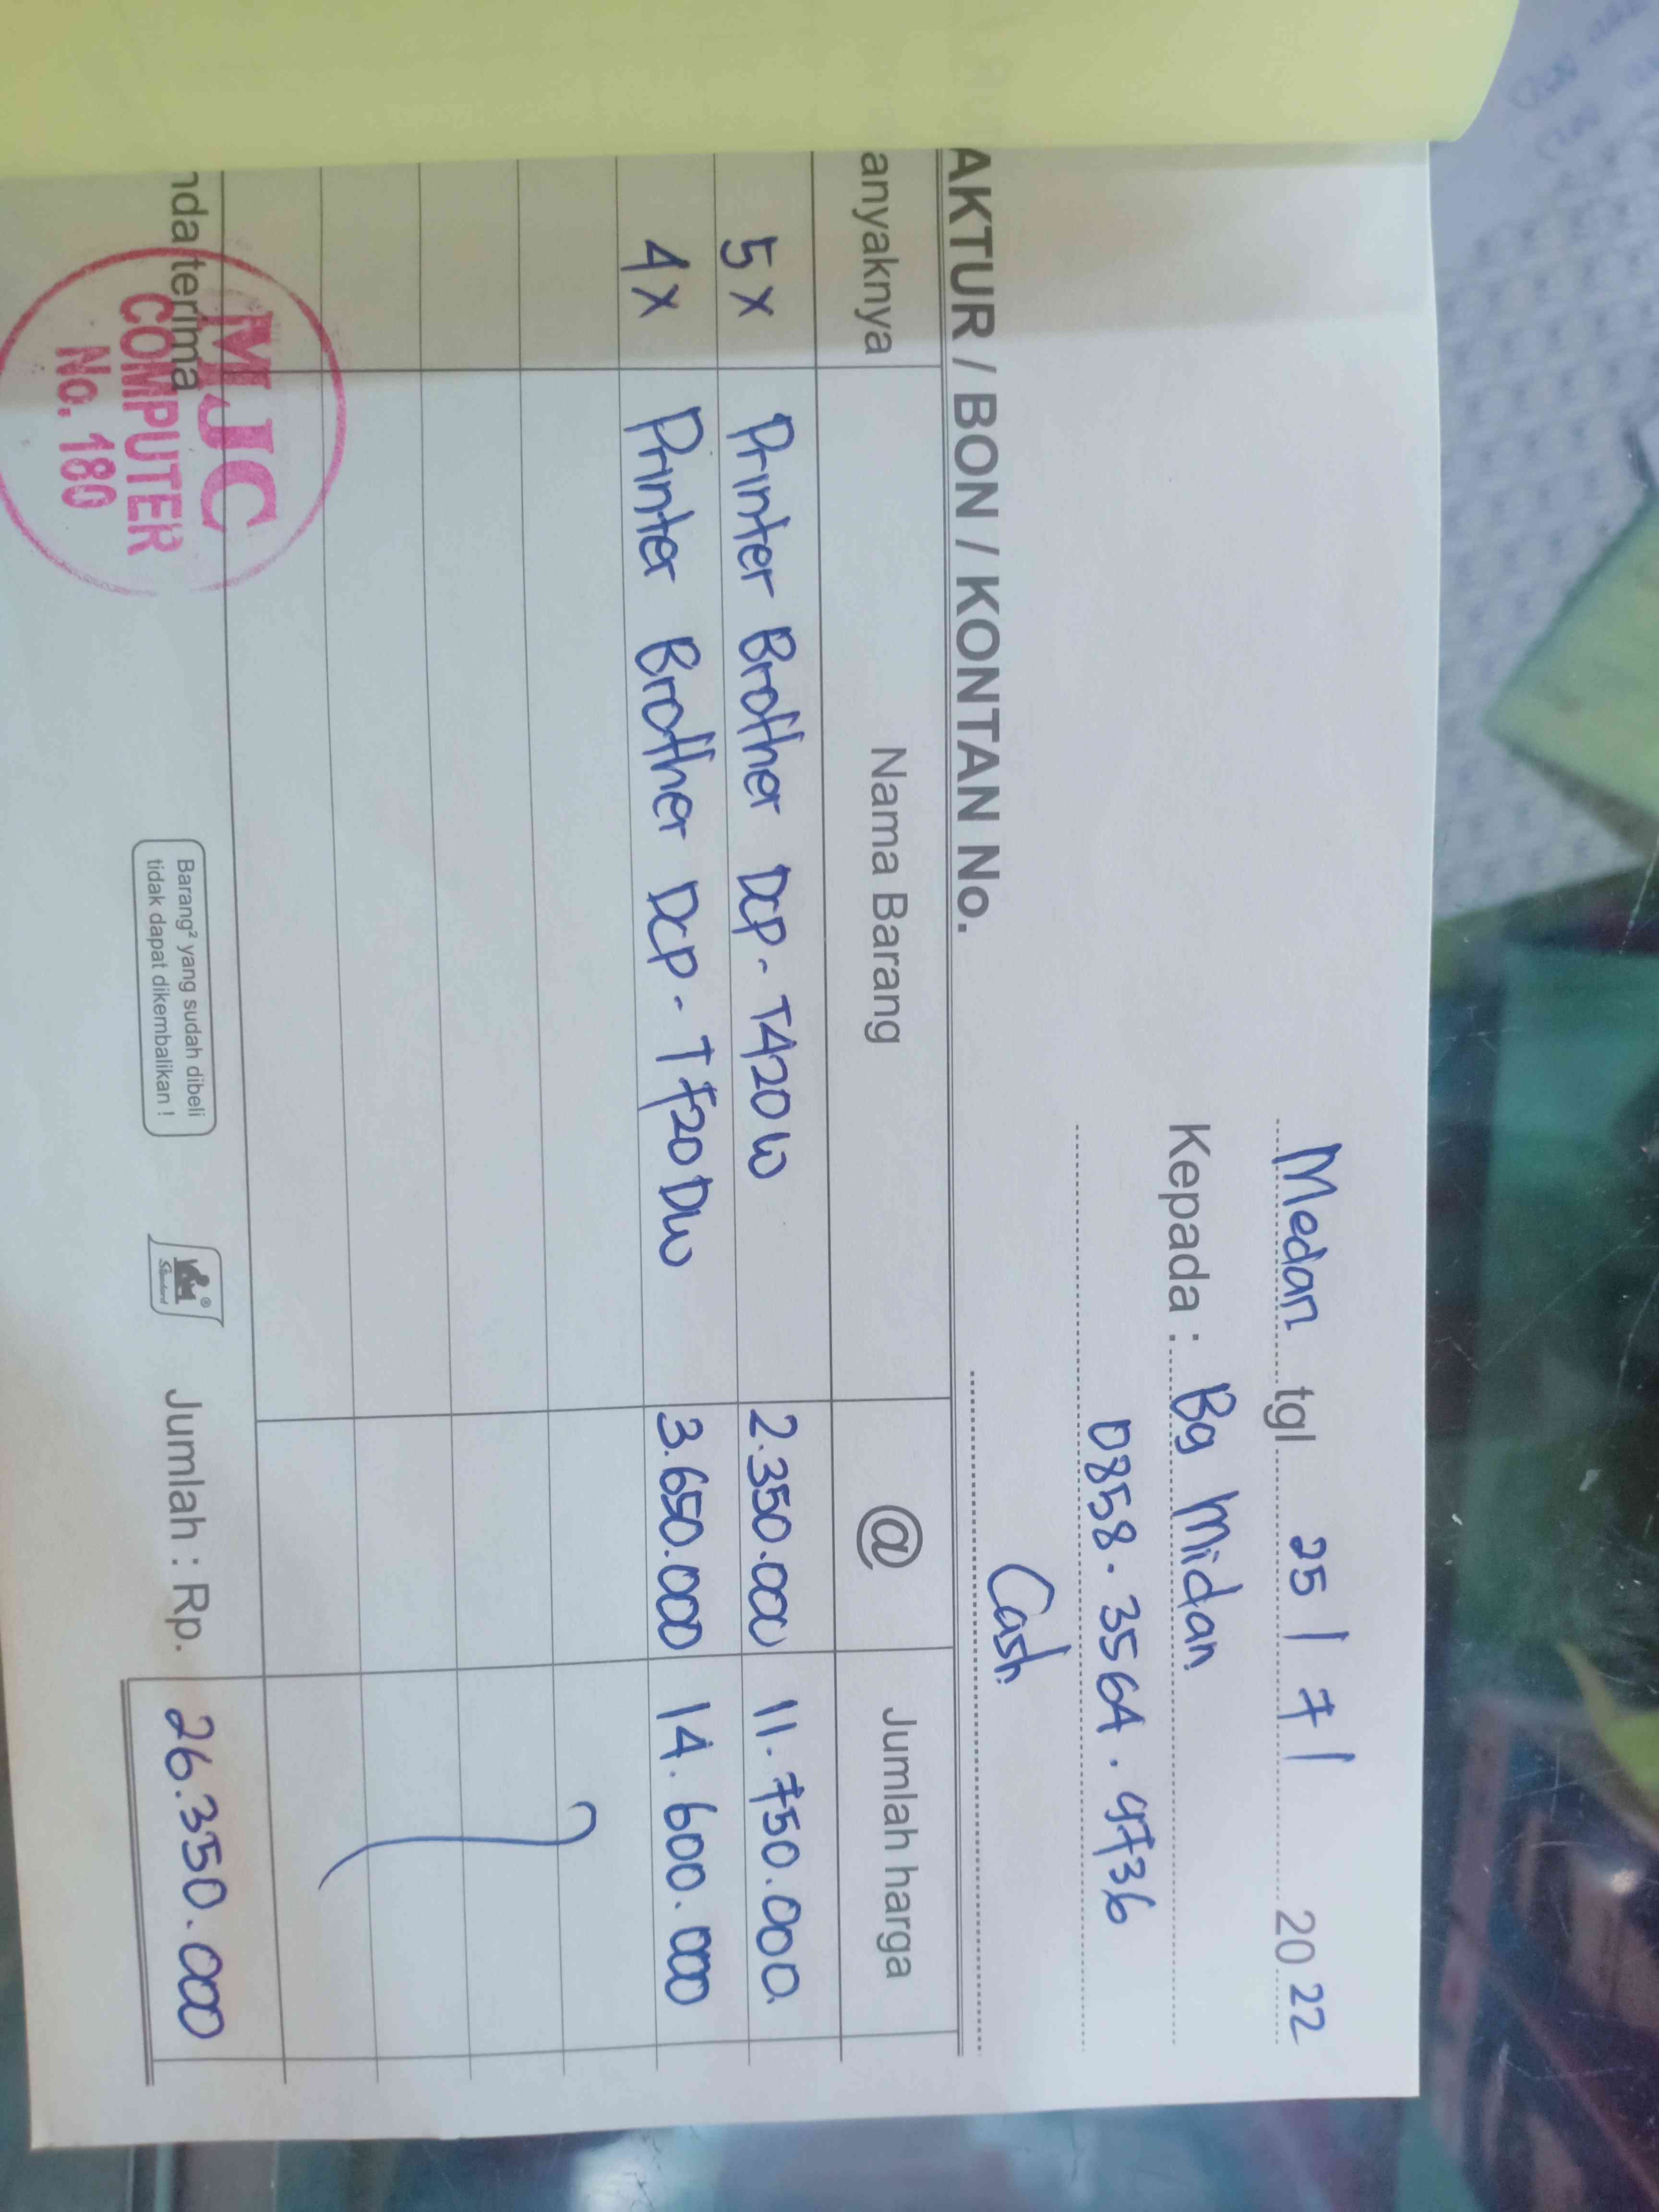 Medan tgl 25 / 7 / 2022
Kepada : Bg Midan
0858 . 3564 . 9736
Cash
AKTUR / BON / KONTAN No.
anyaknya Nama Barang @ Jumlah harga
5 x Printer Brother DCP - T420W 2.350.000 11.750.000
4 x Printer Brother DCP - T720DW 3.650.000 14.600.000
nda terima
Barang² yang sudah dibeli
tidak dapat dikembalikan !
Standard ®
Jumlah : Rp. 26.350.000
MJC
COMPUTER
No. 180